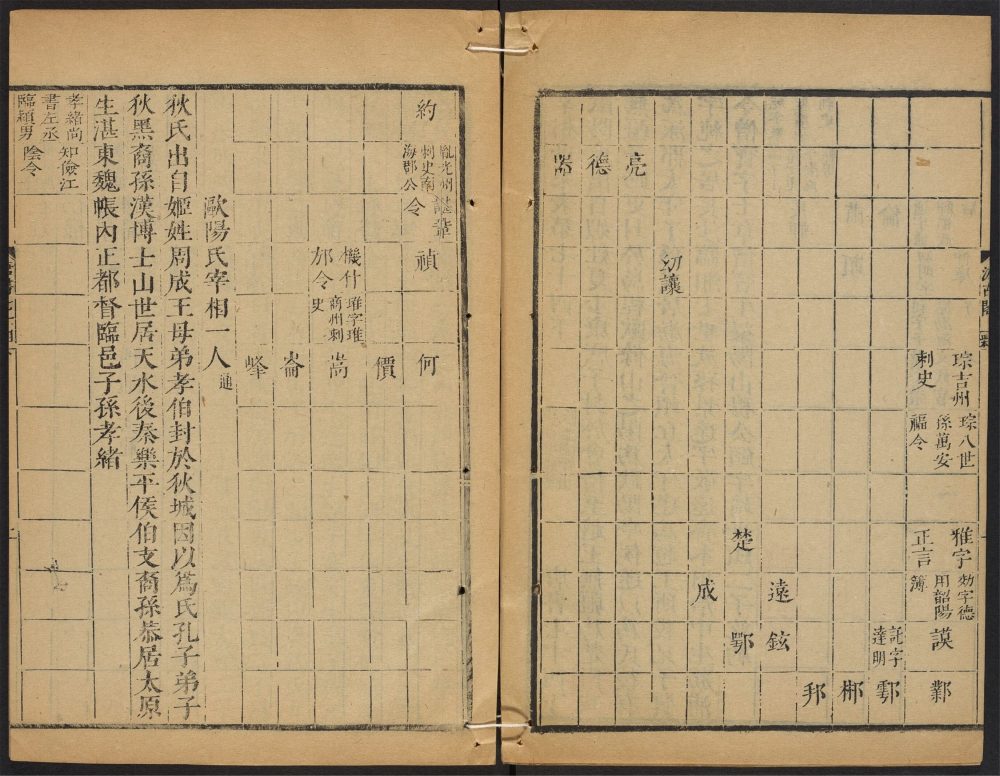 琮吉州
刺史
琮八世
孫萬安
福令
雅字
正言
効字德
用韶陽
簿
謨
鄴
託字
達明
鄠
郴
邦
遠
鉉
楚
鄂
成
幼讓
亮
德
器
汲古閣
約
胤光州
刺史南
海郡公
諶葦
令
禎
何
價
機什
邡令
琟字琟
商州刺
史
嵩
崙
峰
歐陽氏宰相一人通
狄氏出自姬姓周成王母弟孝伯封於狄城因以為氏孔子弟子
狄黑裔孫漢博士山世居天水後秦樂平侯伯支裔孫恭居太原
生湛東魏帳內正都督臨邑子孫孝緒
孝緒尚
書左丞
臨潁男
知儉江
陰令